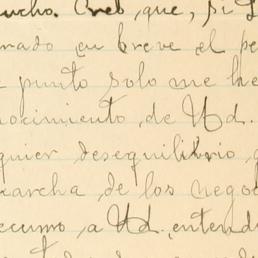 ucho. Creo, que, si
rado en breve el pe
punto solo me he
nocimiento, de Ud.
quier desequilibrio,
archa de los nego
ecurro, a Ud. entend